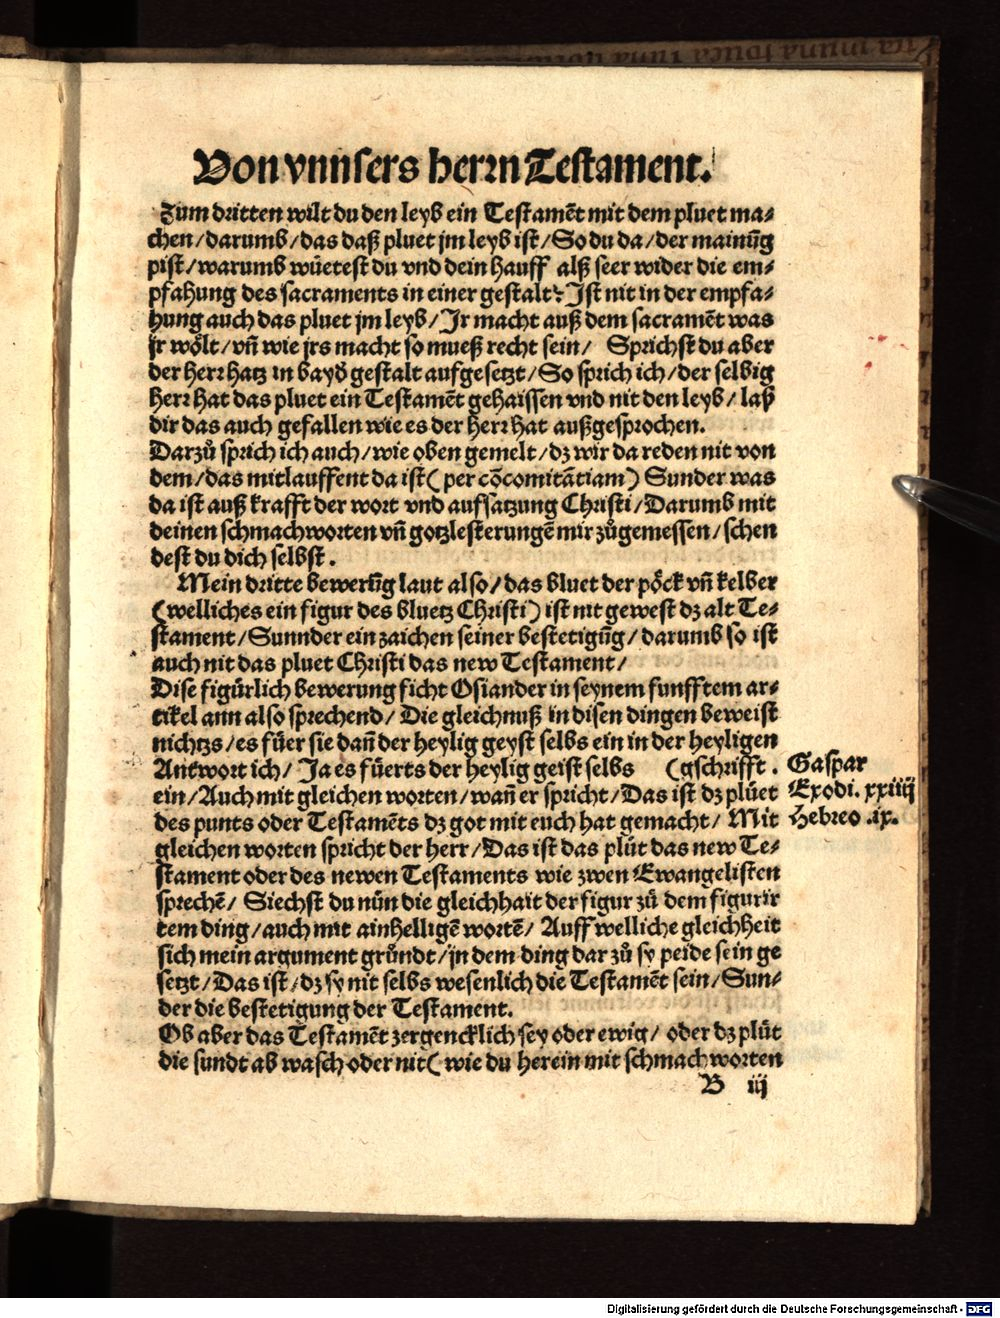 Von vnnsers herrn Testament.
Zum dritten wilt du den leyb ein Testamēt mit dem pluet ma⸗
chen/darumb/das daß pluet jm leyb ist/So du da/der mainūg
pist/warumb wüetest du vnd dein hauff alß seer wider die em⸗
pfahung des sacraments in einer gestalt? Ist nit in der empfa⸗
hung auch das pluet jm leyb/Ir macht auß dem sacramēt was
jr wölt/vn̄ wie jrs macht so mueß recht sein/ Sprichst du aber
der herr hatz in bayd̄ gestalt aufgesetzt/So sprich ich/der selbig
herr hat das pluet ein Testamēt gehaissen vnd nit den leyb/laß
dir das auch gefallen wie es der herr hat außgesprochen.
Darzů sprich ich auch/wie oben gemelt/dz wir da reden nit von
dem/das mitlauffent da ist( per cōcomitātiam) Sunder was
da ist auß krafft der wort vnd aufsatzung Christi/Darumb mit
deinen schmachworten vn̄ gotzlesterungē mir zůgemessen/schen
dest du dich selbst.
Mein dritte bewerūg laut also/das bluet der pöck vn̄ kelber
(welliches ein figur des bluetz Christi) ist nit gewest dz alt Te⸗
stament/Sunnder ein zaichen seiner bestetigūg/darumb so ist
auch nit das pluet Christi das new Testament/
Dise figürlich bewerung ficht Osiander in seynem funfftem ar⸗
tikel ann also sprechend/Die gleichnuß in disen dingen beweist
nichtzs/es füer sie dan̄ der heylig geyst selbs ein in der heyligen
Antwort ich/ Ja es füerts der heylig geist selbs (gschrifft.
ein/Auch mit gleichen worten/wan̄ er spricht/Das ist dz plüet
des punts oder Testamēts dz got mit euch hat gemacht/ Mit
gleichen worten spricht der herr/Das ist das plüt das new Te⸗
stament oder des newen Testaments wie zwen Ewangelisten
sprechē/ Siechst du nün die gleichhait der figur zů dem figurir
tem ding/auch mit ainhelligē wortē/ Auff welliche gleichheit
sich mein argument gründt/jn dem ding dar zů sy peide sein ge
setzt/Das ist/dz sy nit selbs wesenlich die Testamēt sein/Sun⸗
der die bestetigung der Testament.
Ob aber das Testamēt zergencklich sey oder ewig/ oder dz plüt
die sundt ab wasch oder nit( wie du herein mit schmachworten
B iij
Gaspar
Exodi. xxiiij
Hebreo .ix.
Digitalisierung gefördert durch die Deutsche Forschungsgemeinschaft - DFG